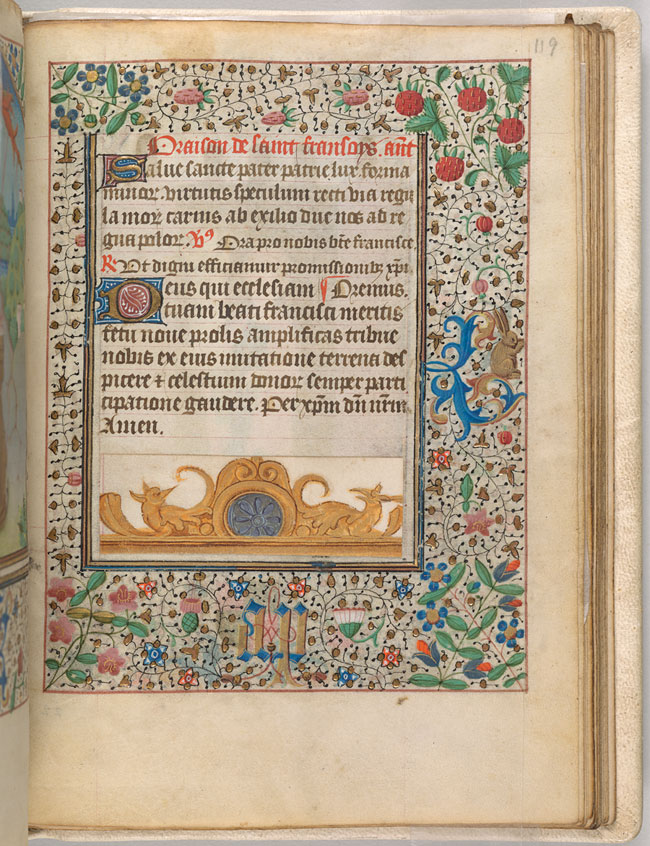 119
Oraison de saint fransoys. añt
Salue sancte pater patrie lux. forma
minor. virtutis speculum recti via regu
la mor carnis ab exilio duc nos ad re
gna polor. V9 Ora pro nobis bt̄e francisce
R Vt digni efficiamur promissionibꝫ xp̄i
Deus qui ecclesiam Oremus.
tuam beati francisci meritis
fetu noue prolis amplificas tribue
nobis ex eius imitatione terrena des
picere ⁊ celestium donor semper parti
cipatione gaudere. Per xp̄m dn̄m nr̄m
Amen.